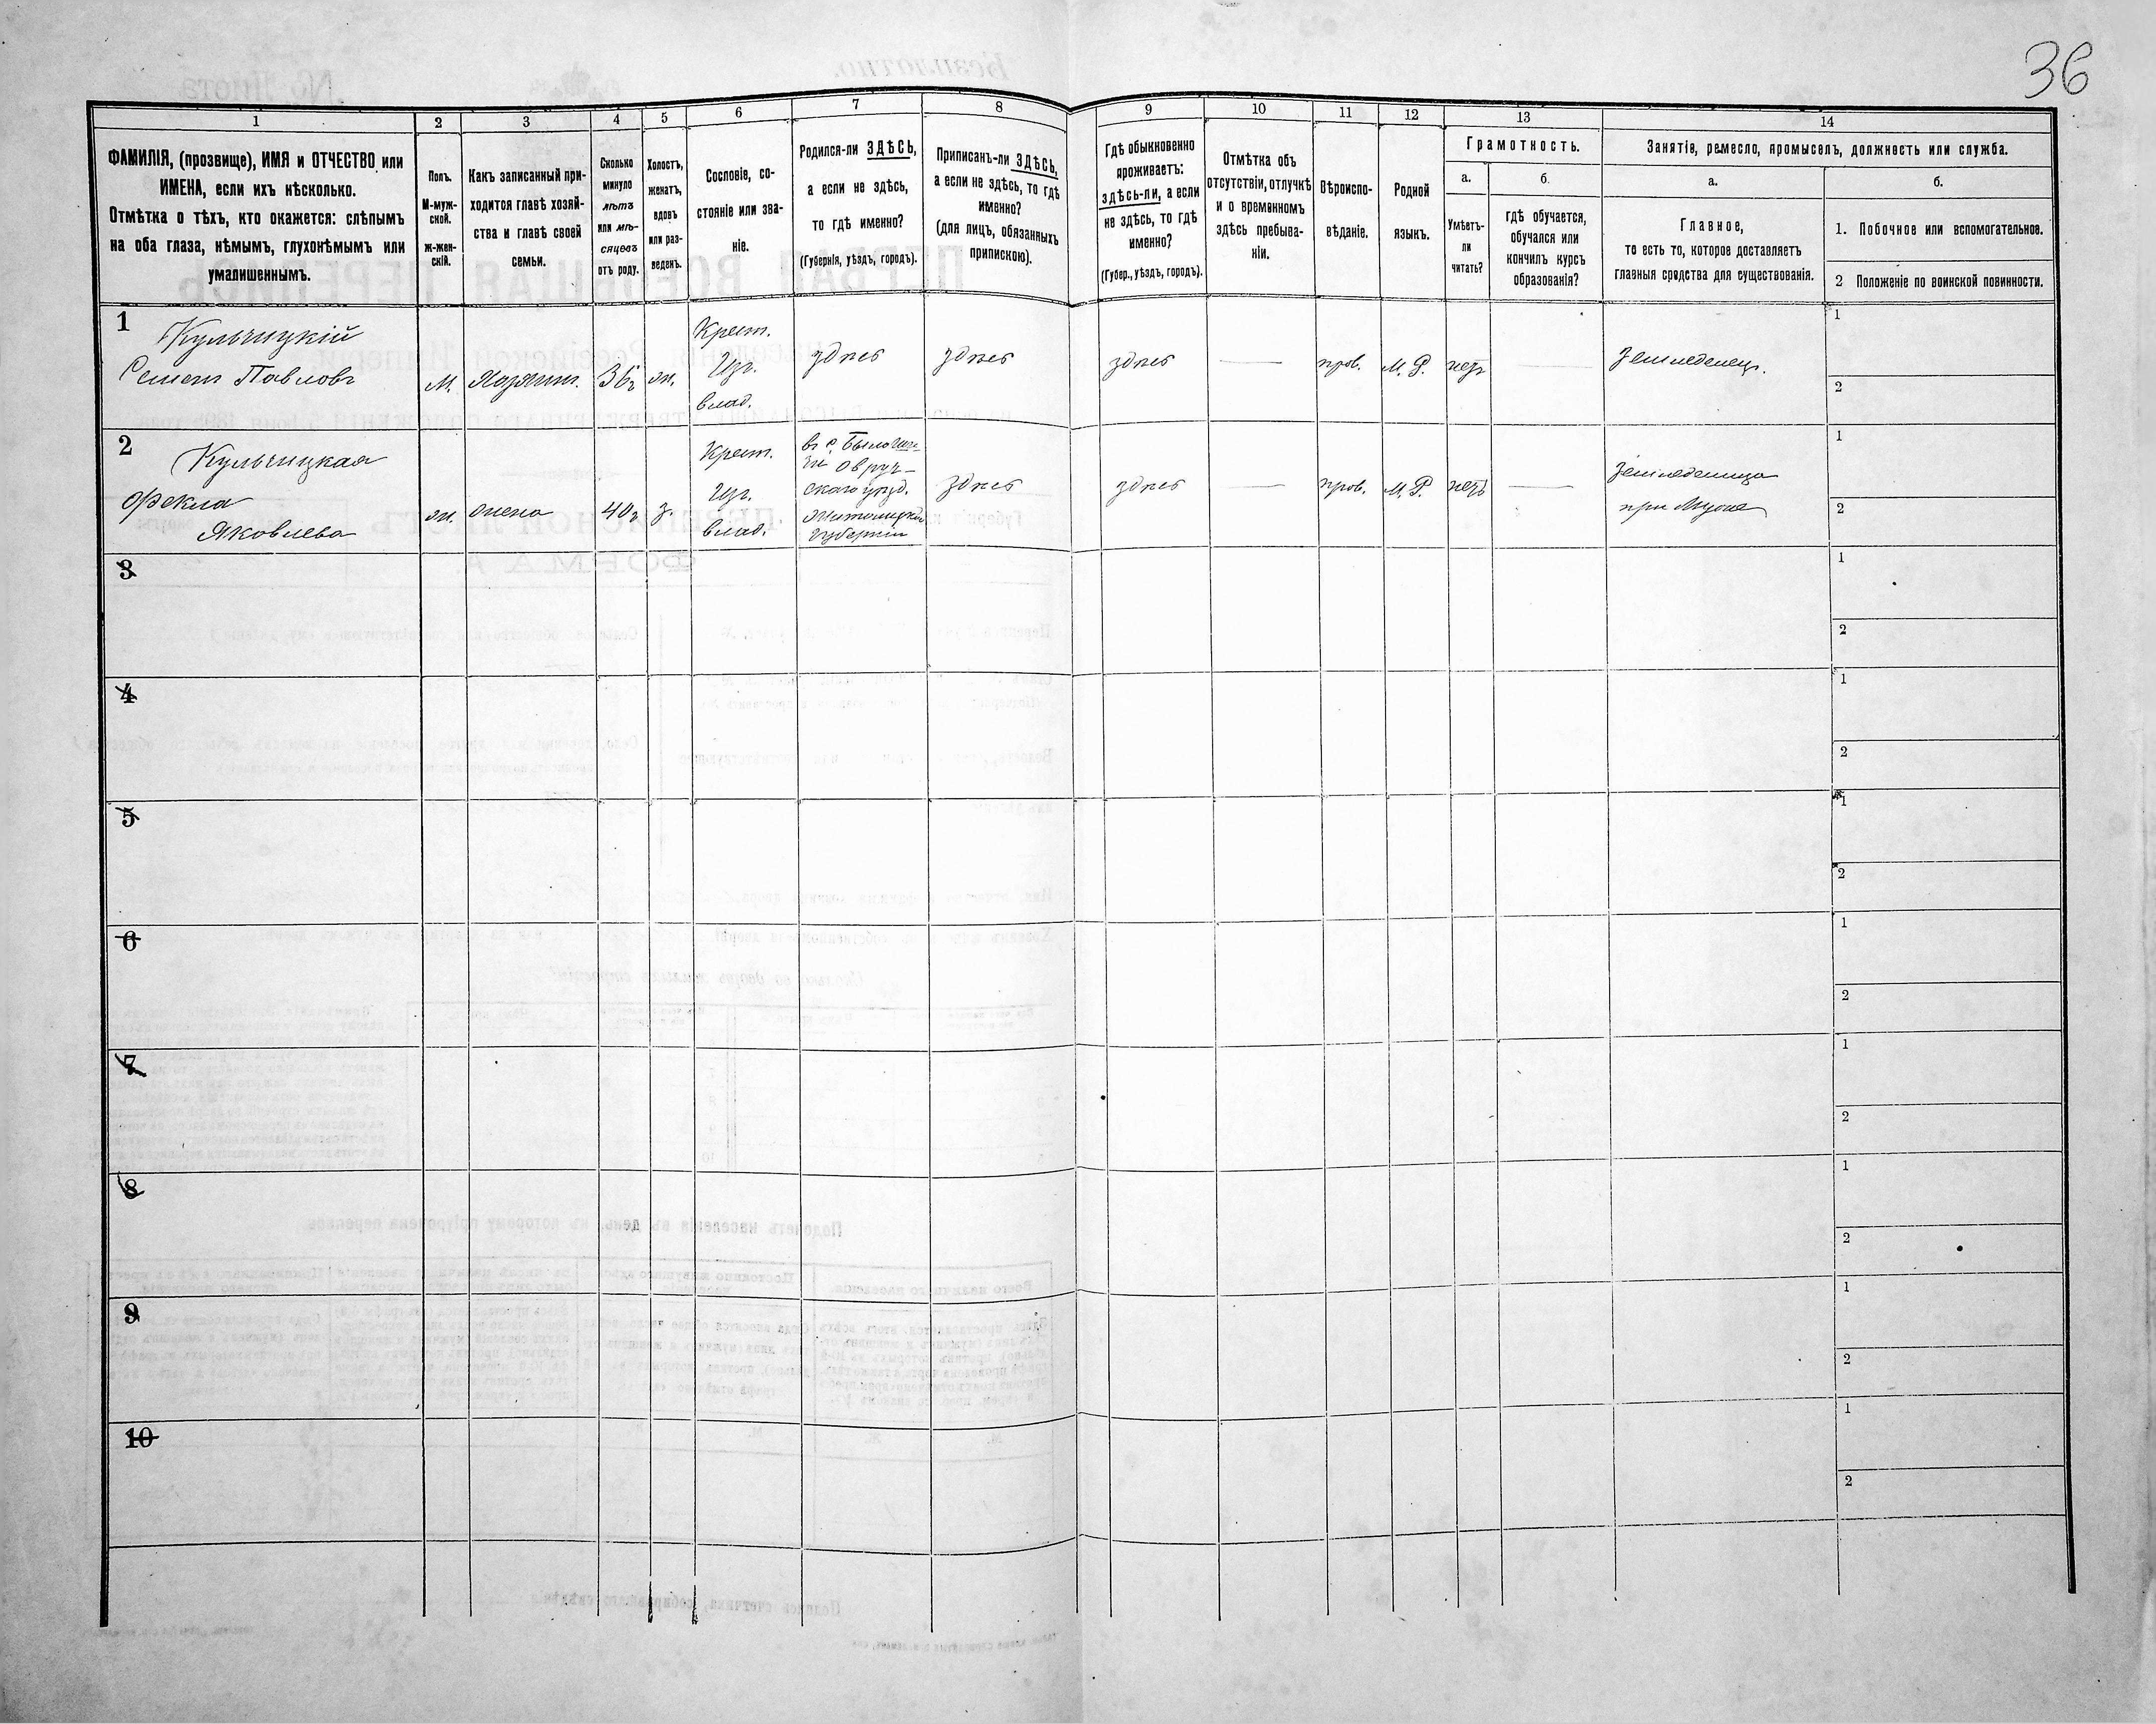 36
1
2
3
4
5
6
7
8
9
10
11
12
13
14
ФАМИЛІЯ, (прозвище), ИМЯ и ОТЧЕСТВО или
ИМЕНА, если ихъ нѣсколько.
Отмѣтка о тѣхъ, кто окажется: слѣпымъ
на оба глаза, нѣмымъ, глухонѣмымъ или
умалишеннымъ.
Полъ.
М-муж-
ской.
ж-жен-
скій.
Какъ записанный при-
ходится главѣ хозяй-
ства и главѣ своей
семьи.
Сколько
минуло
лѣтъ
или мѣ-
сяцевъ
отъ роду.
Холостъ,
женатъ,
вдовъ
или раз-
веденъ.
Сословіе, со-
стояніе или зва-
ніе.
Родился-ли ЗДѢСЬ,
а если не здѣсь,
то гдѣ именно?
(Губернія, уѣздъ, городъ).
Приписанъ-ли ЗДѢСЬ,
а если не здѣсь, то гдѣ
именно?
(для лицъ, обязанныхъ
припискою).
Гдѣ обыкновенно
проживаетъ:
ЗДѢСЬ-ли, а если
не здѣсь, то гдѣ
именно?
(Губер., уѣздъ, городъ).
Отмѣтка объ
отсутствіи, отлучкѣ
и о временномъ
здѣсь пребыва-
ніи.
Вѣроиспо-
вѣданіе.
Родной
языкъ.
Грамотность.
а.
Умѣетъ-
ли
читать?
б.
гдѣ обучается,
обучался или
кончилъ курсъ
образованія?
Занятіе, ремесло, промыселъ, должность или служба.
а.
Главное,
то есть то, которое доставляетъ
главныя средства для существованія.
б.
1. Побочное или вспомогательное.
2 Положеніе по воинской повинности.
1
Кульчицкій
Семенъ Павловъ
м.
Хозяин.
36
ж.
Крест.
Из.
влад.
здѣсь
здѣсь
здѣсь
—
прав.
М. Р.
нетъ
—
Земледелец.
1
2
2
Кульчицкая
Фекла
Яковлева
ж.
жена
40
з.
Крест.
Из.
влад.
въ с.
Овруч-
скаго уѣзд.
губерніи
здѣсь
здѣсь
—
прав.
М. Р.
нетъ
—
при Муже
1
2
3
1
2
4
1
2
5
1
2
6
1
2
7
1
2
8
1
2
9
1
2
10
1
2